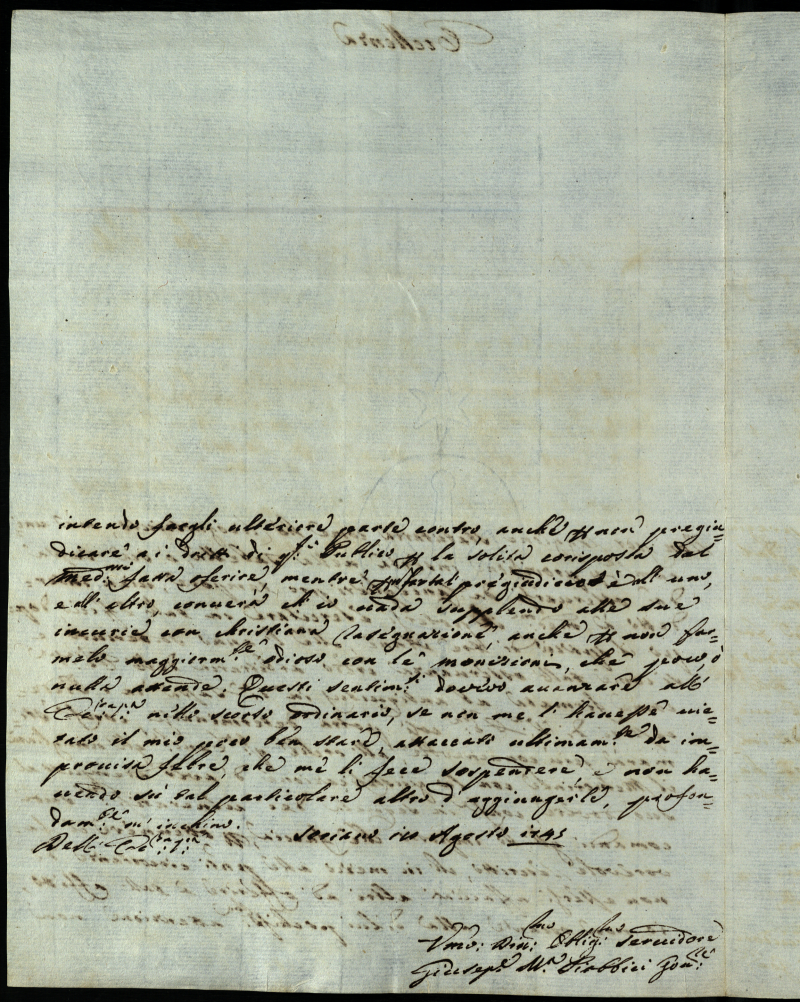 intendo fargli ulteriore parte contro, anche non pregiu=
dicare ai dritti di q.to Publico la solita corisposta dal
med.mo fatta oferire, mentre pregiudicio è all' uno,
e all' altro, converà ch' io vada supplendo alle sue
incurie con christiana rasegnazione, anche non far=
melo maggiorm.te odioso con le monizioni, che poco, ò
nulla attende. Questi sentim.ti dovevo avanzare all'
nello scorso ordinario, se non me l' havesse vie=
tato il mio poco ben stare, attaccato ultimam.te da im=
provisa febre, che me li fece sospendere, e non ha=
vendo sù tal particolare altro d' aggiungerle, profon=
dam.te m' inchino.
Dell' Soriano 10 Agosto 1745
Umo: Dmo: Obligmo servidore
Giusep.e M.a Gov.re